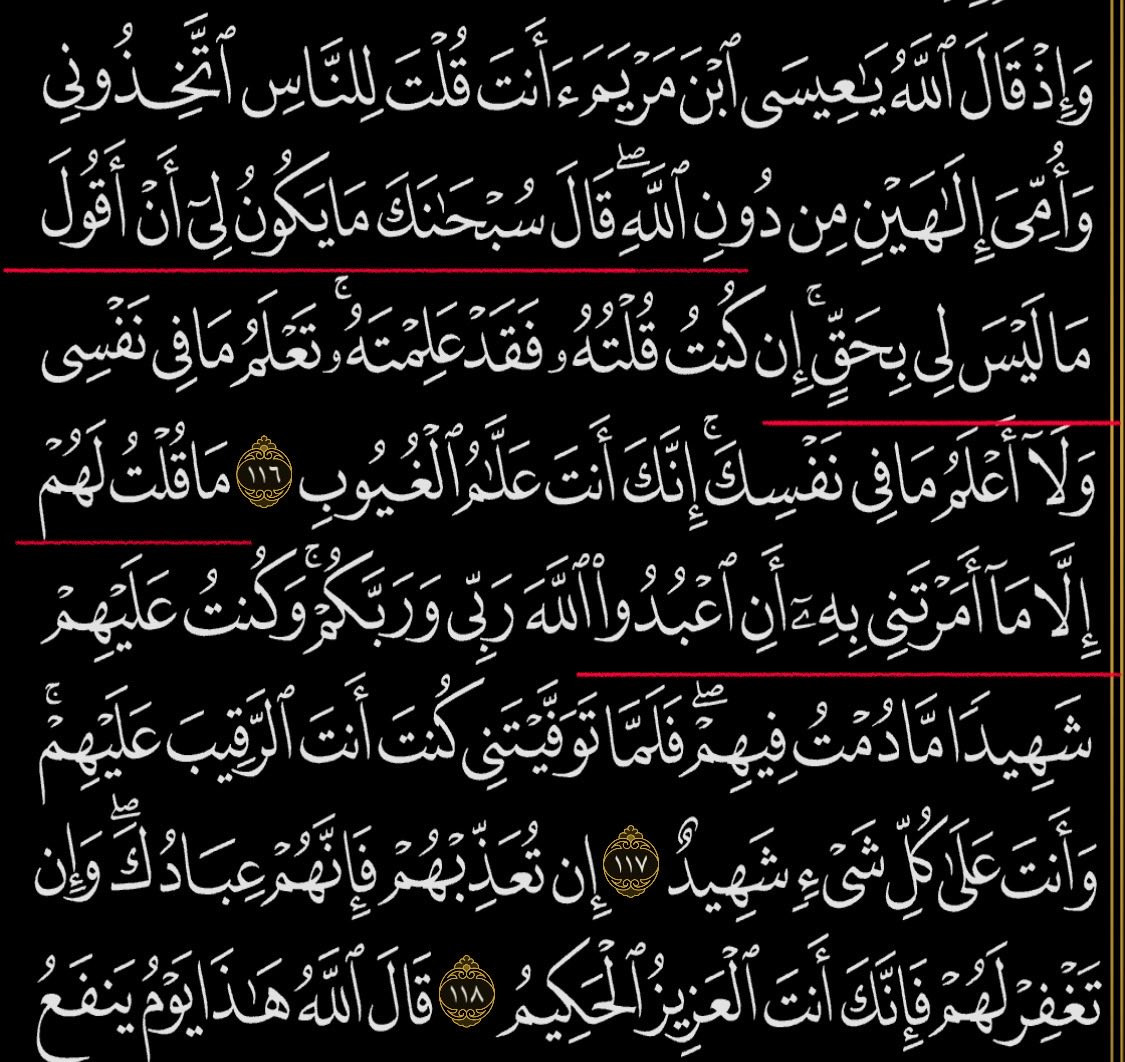 وَإِذْ قَالَ ٱللَّهُ يَـٰعِيسَى ٱبْنَ مَرْيَمَ ءَأَنتَ قُلْتَ لِلنَّاسِ ٱتَّخِذُونِى
وَأُمِّىَ إِلَـٰهَيْنِ مِن دُونِ ٱللَّهِ ۖ قَالَ سُبْحَـٰنَكَ مَا يَكُونُ لِىٓ أَنْ أَقُولَ
مَا لَيْسَ لِى بِحَقٍّ ۚ إِن كُنتُ قُلْتُهُۥ فَقَدْ عَلِمْتَهُۥ ۚ تَعْلَمُ مَا فِى نَفْسِى
وَلَآ أَعْلَمُ مَا فِى نَفْسِكَ ۚ إِنَّكَ أَنتَ عَلَّـٰمُ ٱلْغُيُوبِ ١١٦ مَا قُلْتُ لَهُمْ
إِلَّا مَآ أَمَرْتَنِى بِهِۦٓ أَنِ ٱعْبُدُوا۟ ٱللَّهَ رَبِّى وَرَبَّكُمْ ۚ وَكُنتُ عَلَيْهِمْ
شَهِيدًا مَّا دُمْتُ فِيهِمْ ۖ فَلَمَّا تَوَفَّيْتَنِى كُنتَ أَنتَ ٱلرَّقِيبَ عَلَيْهِمْ ۚ
وَأَنتَ عَلَىٰ كُلِّ شَىْءٍ شَهِيدٌ ١١٧ إِن تُعَذِّبْهُمْ فَإِنَّهُمْ عِبَادُكَ ۖ وَإِن
تَغْفِرْ لَهُمْ فَإِنَّكَ أَنتَ ٱلْعَزِيزُ ٱلْحَكِيمُ ١١٨ قَالَ ٱللَّهُ هَـٰذَا يَوْمُ يَنفَعُ